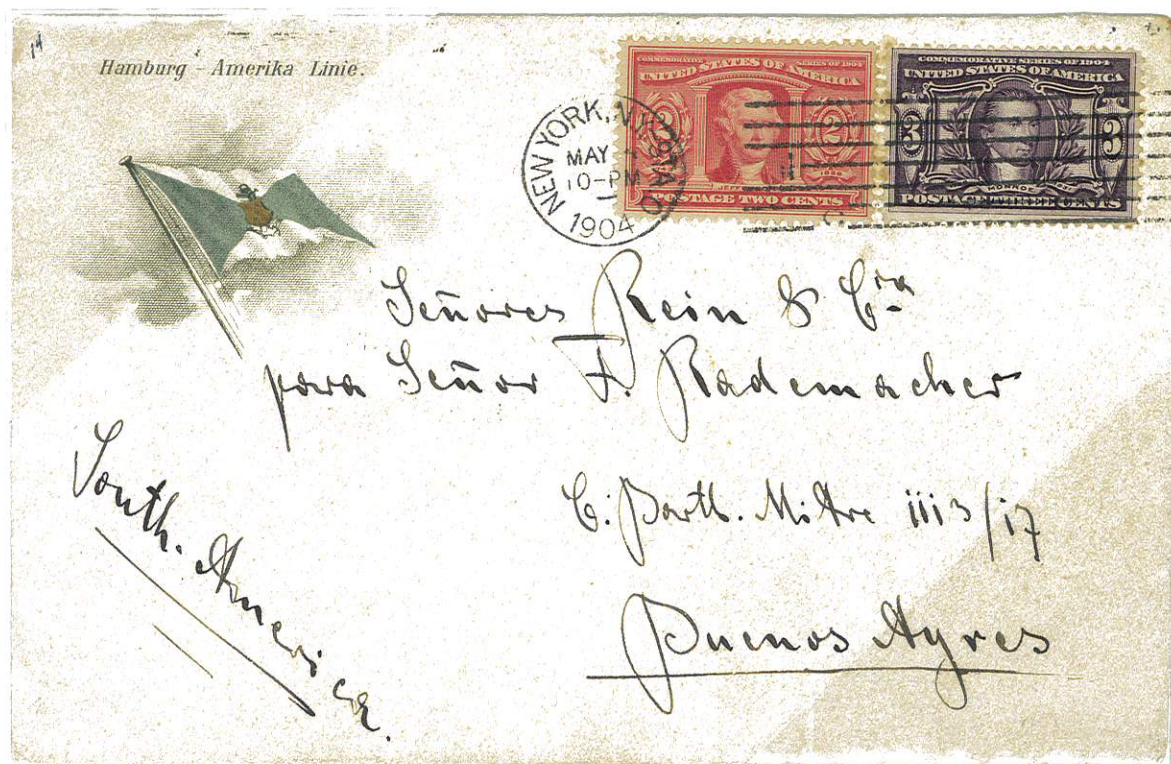 14
Hamburg - Amerika Linie.
COMMEMORATIVE SERIES OF 1904
UNITED STATES OF AMERICA
2 2
JEFFERSON
1803
POSTAGE TWO CENTS
COMMEMORATIVE SERIES OF 1904
UNITED STATES OF AMERICA
3 3
MONROE
POSTAGE THREE CENTS
NEW YORK, N.Y.
MAY
10-PM
1904
Señores Rein & Cia
para Señor F. Rademacher
C. Barth. Mitre 1113/17
Buenos Ayres
South. America.